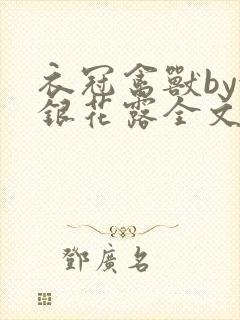 衣冠禽獸by
銀花露全文
鄧廣名